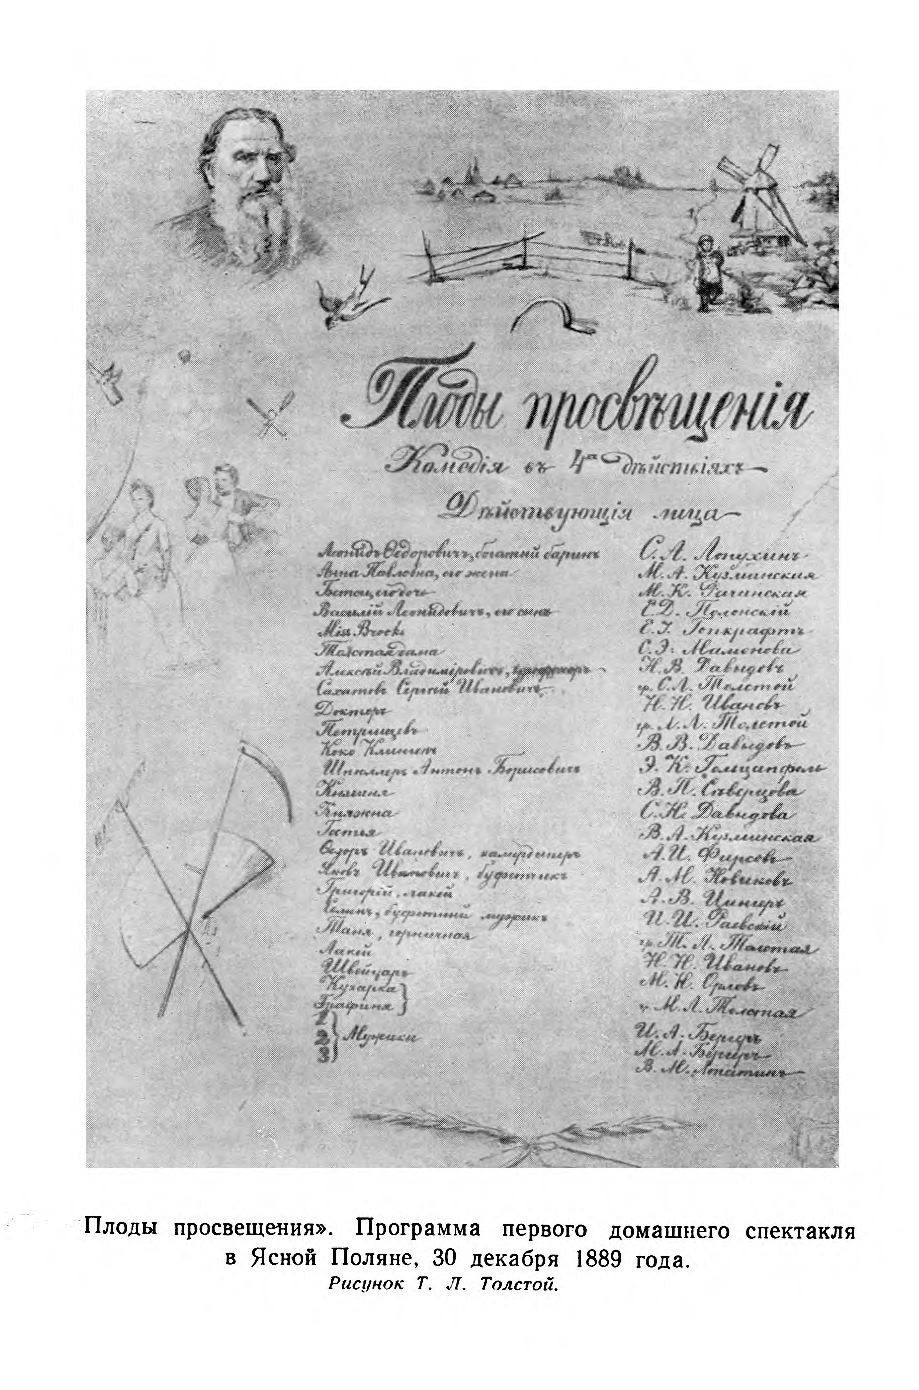 Плоды просвѣщенія
Комедія въ 4хъ дѣйствіяхъ
Дѣйствующія лица
Леонидъ Ѳедоровичъ, богатый баринъ С. А. Лопухинъ
Анна Павловна, его жена М. А. Кузминская
Бетси, его дочь М. К. Рачинская
Василій Леонидовичъ, его сынъ Е. Д. Поленскій
Miss Brooks Е. I. Гопкрафтъ
Толстая дама С. Э. Мамонова
Алексѣй Владиміровичъ, профессоръ Н. В. Давыдовъ
Сахатовъ Сергѣй Ивановичъ гр. С. Л. Толстой
Докторъ Н. Н. Ивановъ
Петрищевъ гр. Л. Л. Толстой
Коко Клингенъ В. В. Давыдовъ
Шпюллеръ Антонъ Борисовичъ Э. К. Гольцапфель
Княгиня В. П. Сѣверцова
Княжна С. Н. Давыдова
Гостья В. А. Кузминская
Ѳедоръ Ивановичъ, камердинеръ А. И. Фирсовъ
Яковъ Ивановичъ, буфетчикъ А. М. Новиковъ
Григорій, лакей А. В. Цингеръ
Семенъ, буфетный мужикъ И. И. Раевскій
Таня, горничная гр. Т. Л. Толстая
Лакей Н. Н. Ивановъ
Швейцаръ М. Н. Орловъ
Кухарка
Графиня М. Л. Толстая
1
2 Мужики
3
И. А. Бергеръ
М. А. Бергеръ
В. М. Лопатинъ
Плоды просвещения». Программа первого домашнего спектакля
в Ясной Поляне, 30 декабря 1889 года.
Рисунок Т. Л. Толстой.